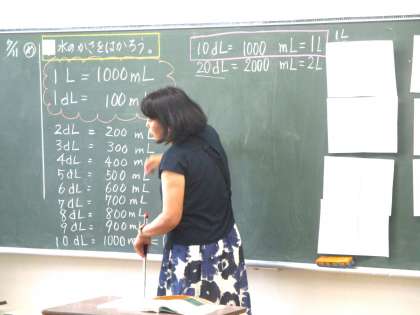 7/11
水のかさをはかろう。
1L = 1000mL
1dL = 100mL
2dL = 200mL
3dL = 300mL
4dL = 400mL
5dL = 500mL
6dL = 600mL
7dL = 700mL
8dL = 800mL
9dL = 900mL
10dL = 1000mL = 1
10dL = 1000 mL = 1L
20dL = 2000 mL = 2L
1L